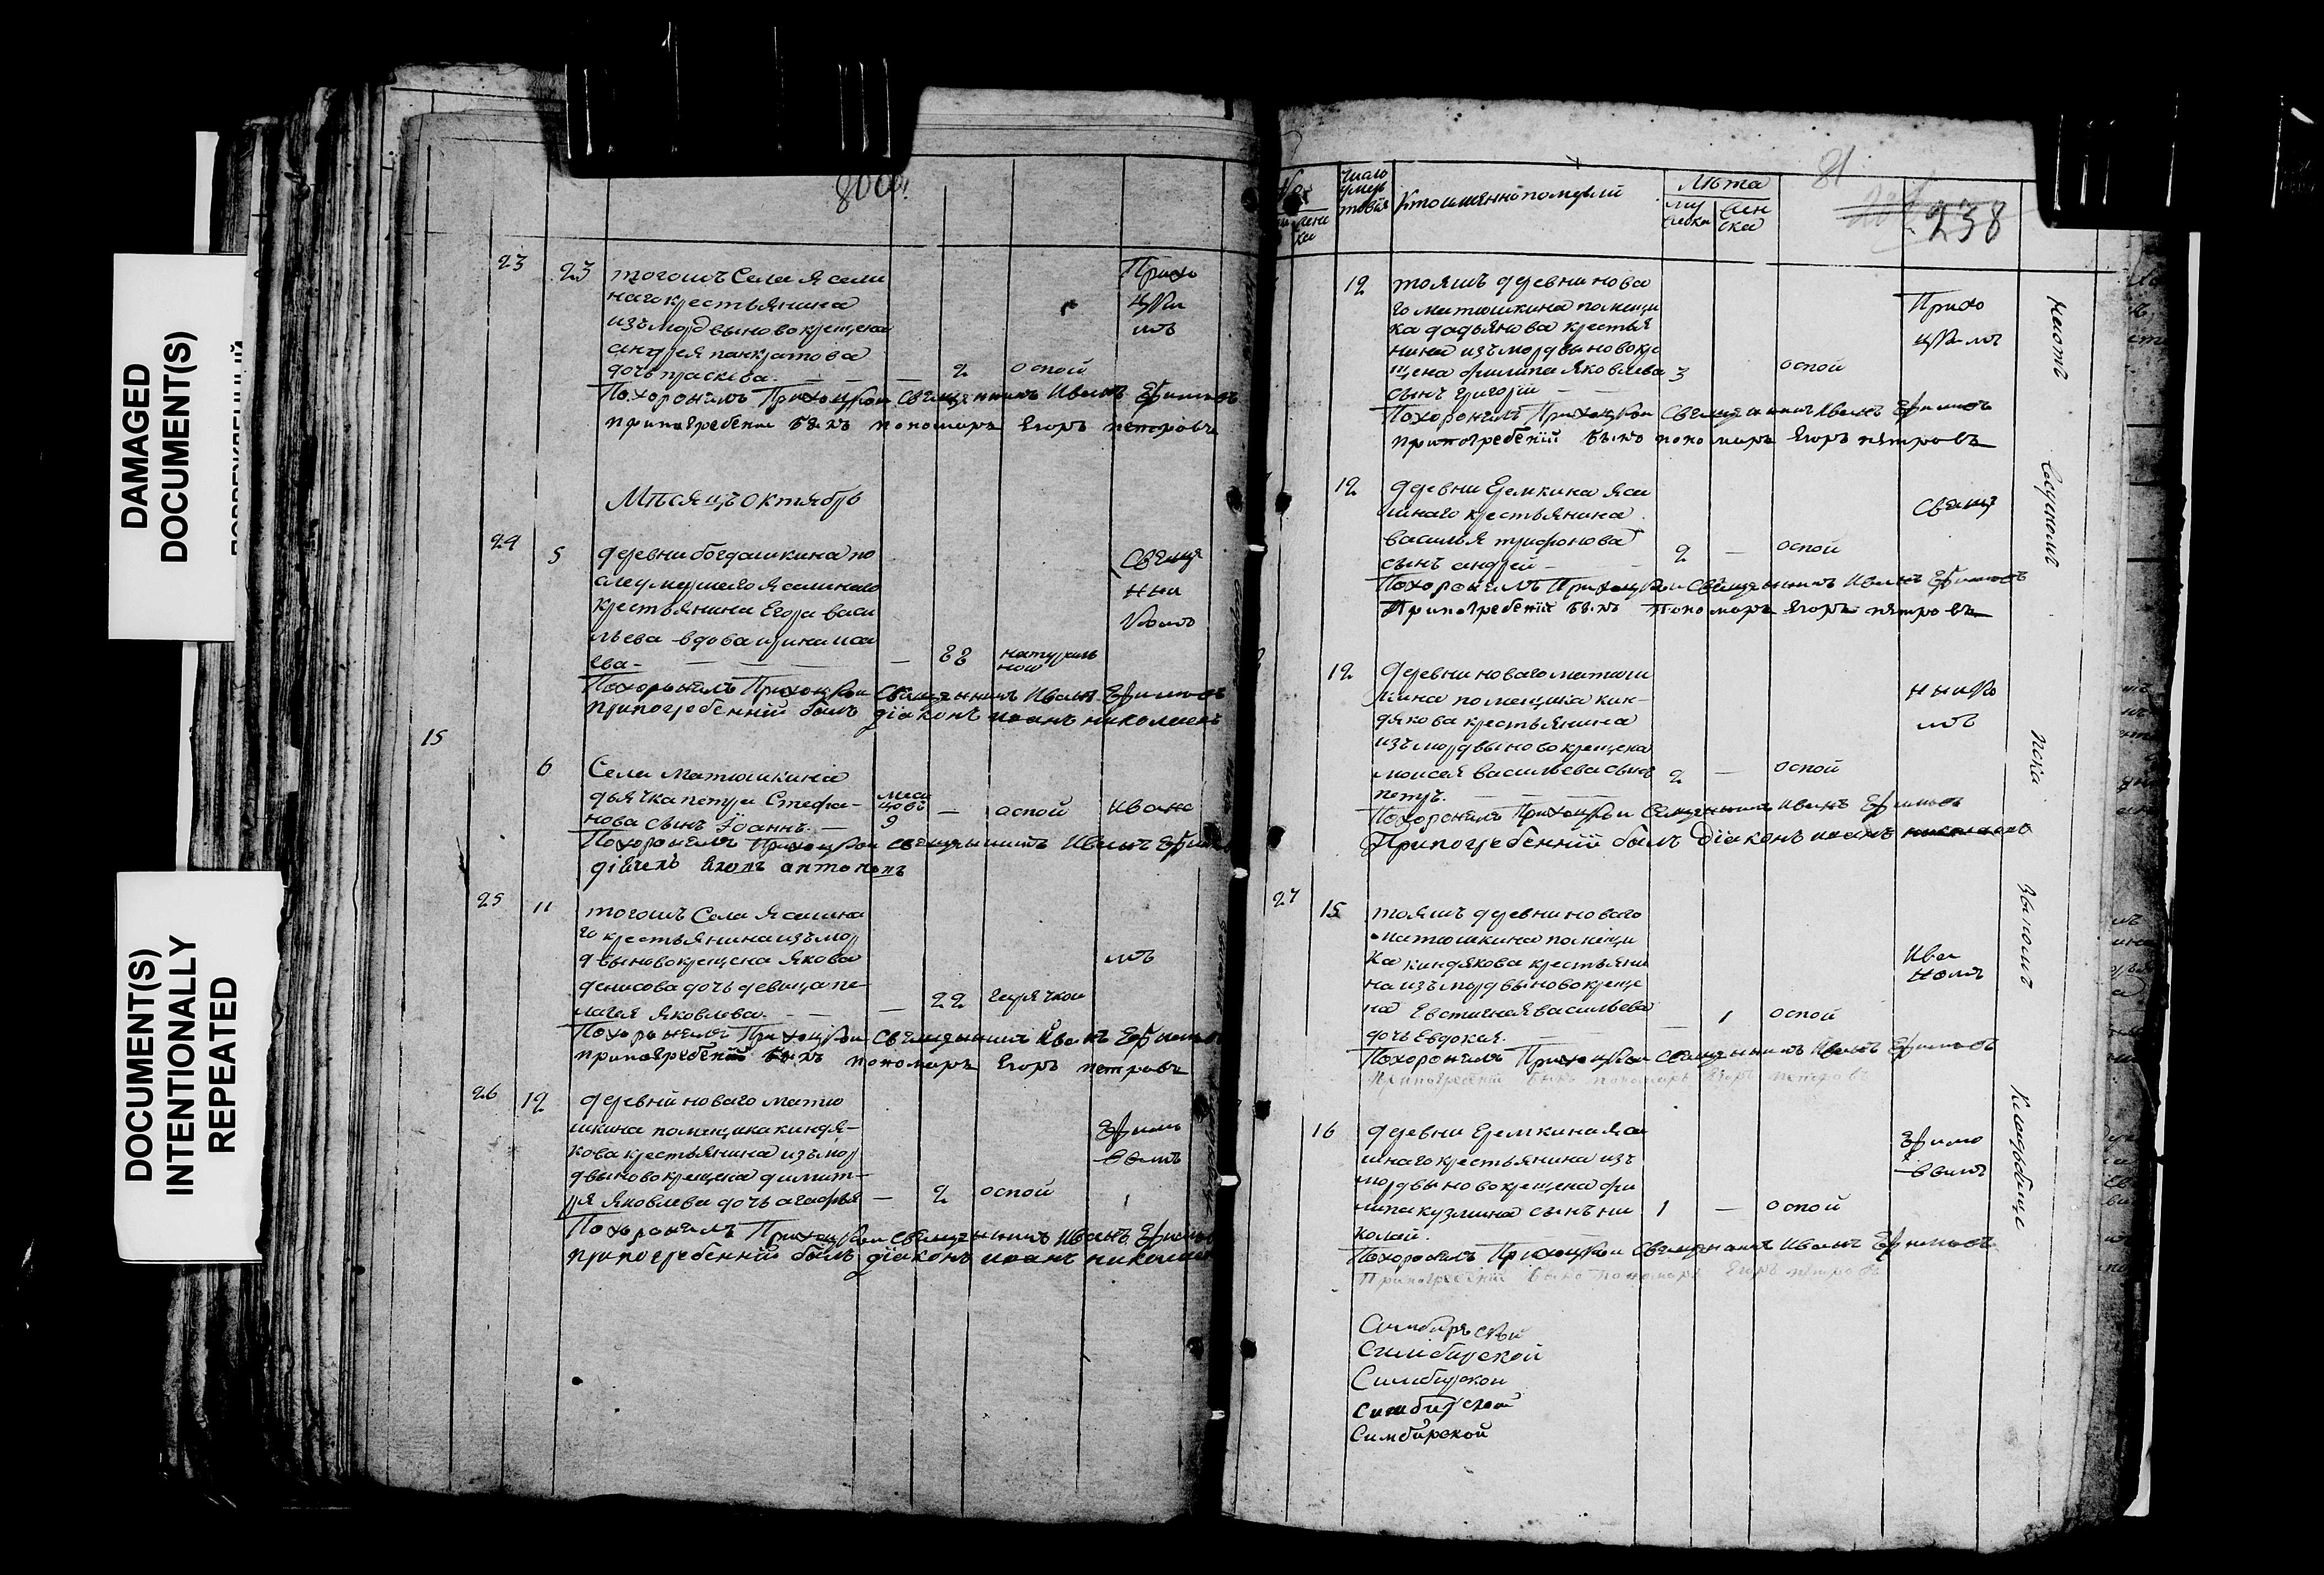 DAMAGED
DOCUMENT(S)
DOCUMENT(S)
INTENTIONALLY
REPEATED
23 23 тогожъ Села Ясаш
наго крестьянина
изъ мордвы новокрещена
андрея панкратова
дочь праскева. 2 оспой
Прихо
Похоронилъ Приходкои священникъ Иванъ Ефимовъ
припогребении былъ пономаръ Егоръ петровъ
Мѣсяцъ октябрь
24 5 деревни богдашкина по
сле умершего ясашнаго
крестьянина Егора васи
льева вдова ирина иса
ева - 88 натураль
ной
Свяще
нни
комъ
Похоронилъ Приходкои Священникъ Иванъ Ефимовъ
припогребенніи былъ діаконъ иоанъ николаевъ
15
6 Села Матюшкина
дьячка петра Стефа-
нова сынъ Іоаннъ. меся
цовъ
9 — аспой Ивано
Похоронилъ Приходкои священникъ Иванъ Ефимовъ
25 11 тогожъ Села Ясашна
го крестьянина изъ мор
двы новокрещена Якова
денисова дочь девица пе-
лагея Яковлева. — 22 горячкои
мъ
Похоронилъ Приходкои священникъ Иванъ Ефимовъ
припогребеніи былъ пономаръ Егоръ петровъ
26 12 деревни новаго матю
шкина помещика киндя-
кова крестьянина изъ мор
двы новокрещена димит-
рія Яковлева дочь агафья — 2 оспой
Ефимо
вымъ
Похоронилъ Приходкои священникъ Иванъ Ефимовъ
припогребенніи былъ діаконъ иоанъ николаевъ
число
умер
твія
Кто именно померли
Лѣта
муж
жен
ска
81
238
12 тояжъ деревни нова
го матюшкина помещи
ка дадьянова крестья
нина изъ мордвы новокре
щена филипа Яковлева 3 оспой
сынъ григорій —
Прихо
Похоронилъ Приходкои Священникъ Иванъ Ефимовъ
припогребеніи былъ пономаръ Егоръ петровъ
12 деревни Еремкина яса
шнаго крестьянина
василья трифонова
сынъ андрей — 2 — оспой
Свяще
Похоронилъ Приходкои Священникъ Иванъ Ефимовъ
Припогребеніи былъ пономаръ Егоръ петровъ
12 деревни новаго матюш
кина помещика кин-
дякова крестьянина
изъ мордвы новокрещена
моисея васильева сынъ 2 — оспой
петръ.
ннико
мъ
Похоронилъ Приходкои Священникъ Иванъ Ефимовъ
Припогребенніи былъ діаконъ иоанъ николаевъ
27 15 тояжъ деревни новаго
матюшкина помещи
ка киндякова крестьяни
на изъ мордвы новокреще
на Евстигнея васильева
дочь Евдокея. — 1 оспой
Ива
номъ
Похоронилъ Приходкои священникъ Иванъ Ефимовъ
припогребеніи былъ пономаръ Егоръ петровъ
16 деревни Еремкина яса
шнаго крестьянина изъ
мордвы новокрещена фи
липа кузмина сынъ ни
колай. 1 — оспой
Ефимо
вымъ
Похоронилъ Приходкои священникъ Иванъ Ефимовъ
Припогребеніи былъ пономаръ Егоръ петровъ
Симбирской
Симбирской
Симбирской
Симбирской
Симбирской